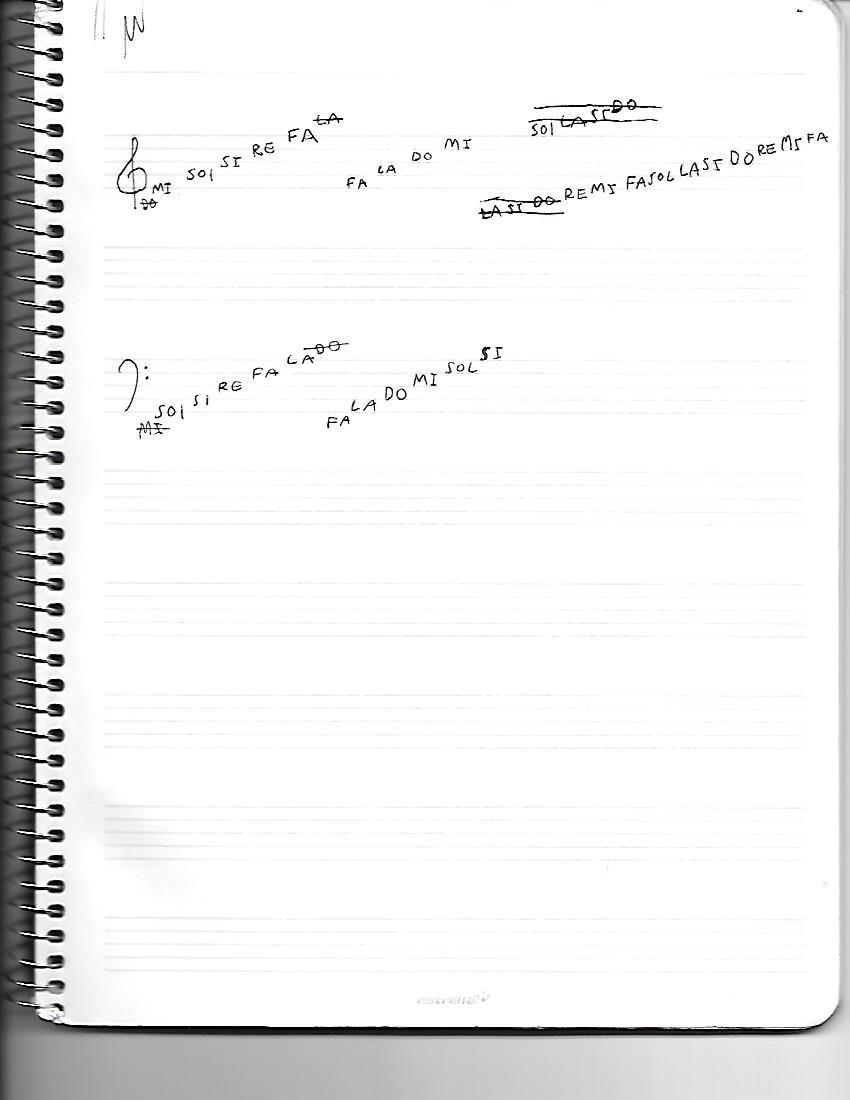 DO MI SOL SI RE FA LA
FA LA DO MI
SOL LA SI DO
LA SI DO RE MI FA SOL LA SI DO RE MI FA
MI SOL SI RE FA LA DO
FA LA DO MI SOL SI
estrella